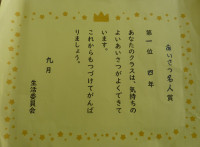 あいさつ名人賞
第一位　四年
あなたのクラスは、気持ちの
よいあいさつがよくできて
います。
これからもつづけてがんば
りましょう。
九月
生活委員会